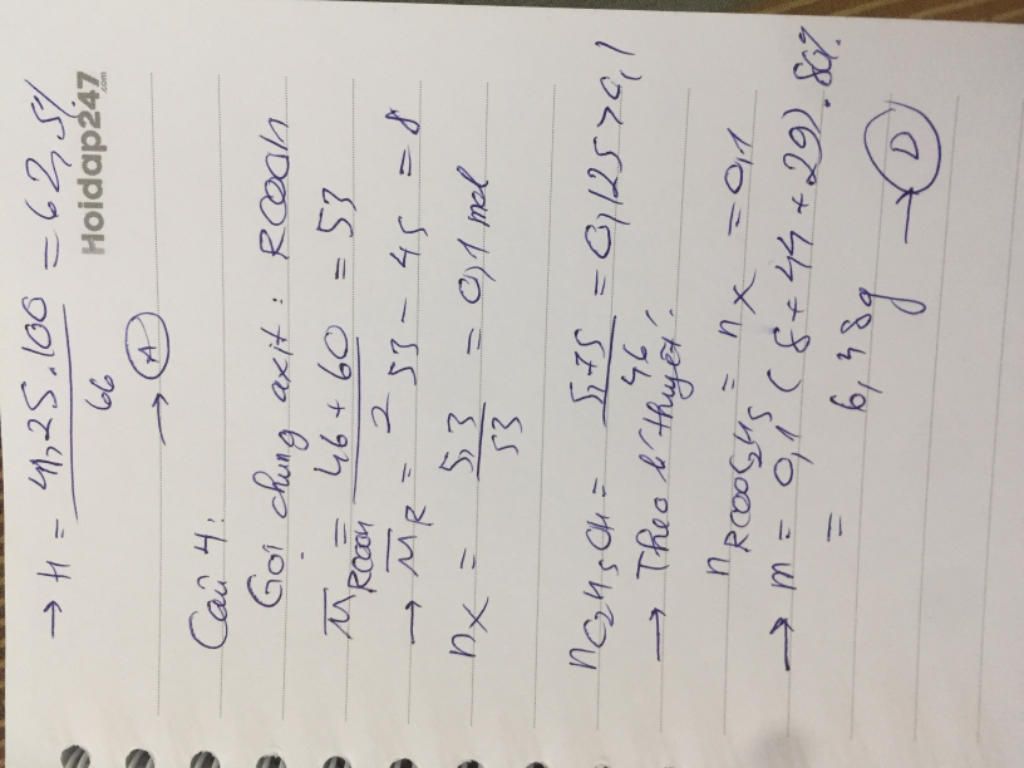 → H = 41,25.100 / 66 = 62,5%
Hoidap247.com
→ A
Câu 4:
Gọi chung axit: RCOOH
M̅RCOOH = 46 + 60 / 2 = 53
→ M̅R = 53 - 45 = 8
nX = 5,3 / 53 = 0,1 mol
nC2H5OH = 5,75 / 46 = 0,125 > 0,1
→ Theo lí thuyết:
nRCOOC2H5 = nX = 0,1
→ m = 0,1 (8 + 44 + 29).80%
= 6,48g → D